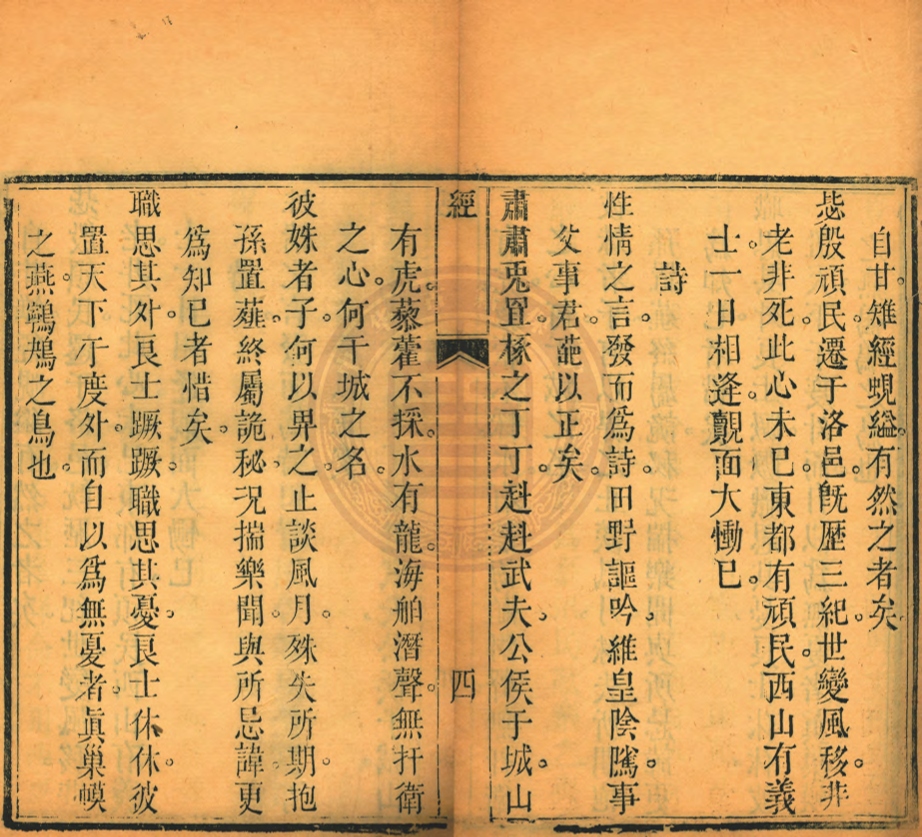 自甘雉經蜆縊有然之者矣
毖殷頑民遷于洛邑旣歷三紀世變風移非
老非死此心未已東都有頑民西山有義
士一日相逢覿面大慟已
詩
性情之言發而爲詩田野謳吟維皇陰隲事
父事君葩以正矣
肅肅兎罝椓之丁丁赳赳武夫公侯于城山
經
四
有虎藜藿不採水有龍海舶潛聲無扞衛
之心何干城之名
彼姝者子何以畀之止談風月殊失所期抱
孫置薤終屬詭秘况揣樂聞與所忌諱更
爲知已者惜矣
職思其外良士蹶蹶職思其憂良士休休彼
置天下于度外而自以爲無憂者眞巢幙
之燕鸋鴂之鳥也